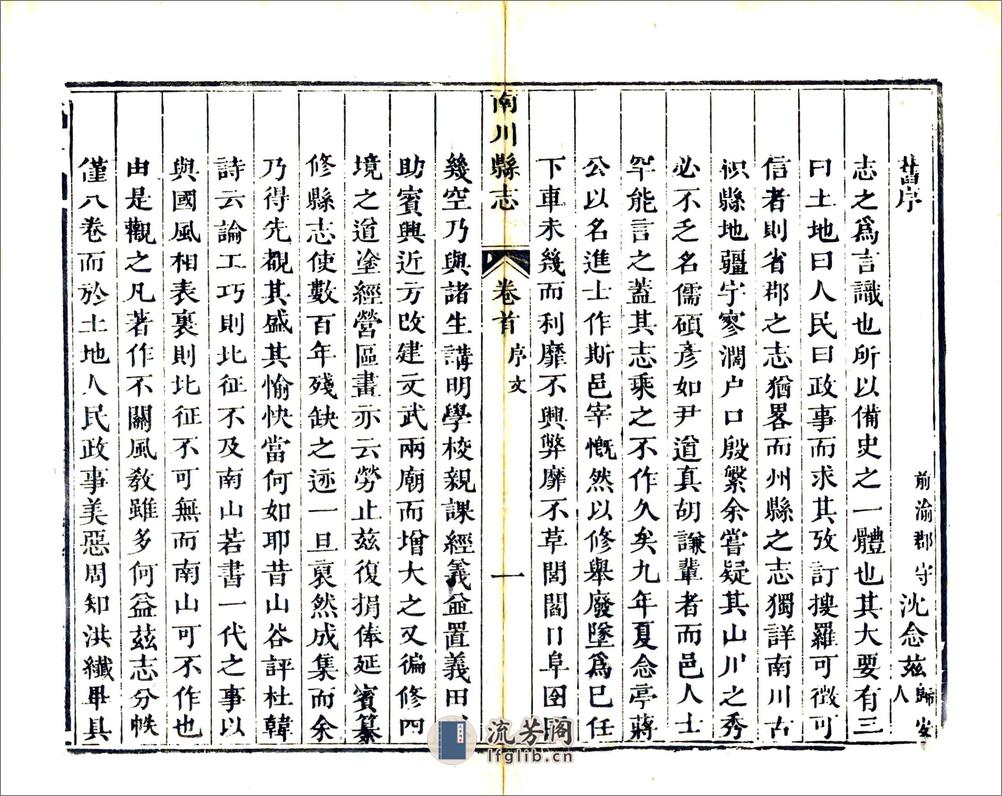 舊序
前渝郡守沈念兹歸安人
志之爲言識也所以備史之一體也其大要有三
曰土地曰人民曰政事而求其攷訂摟羅可徵可
信者則省郡之志猶畧而州縣之志獨詳南川古
枳縣地疆宇寥濶户口殷繁余嘗疑其山川之秀
必不乏名儒碩彦如尹道真胡謙輩者而邑人士
罕能言之蓋其志乘之不作久矣九年夏念亭蔣
公以名進士作斯邑宰慨然以修舉廢墜爲已任
下車未幾而利靡不興弊靡不革閭閻日阜囹圄
南川縣志 卷首 序文 一
幾空乃與諸生講明學校親課經義益置義田以
助賓興近方改建文武兩廟而增大之又徧修四
境之道塗經營區畫亦云勞止兹復捐俸延賓纂
修縣志使數百年殘缺之迹一旦裒然成集而余
乃得先覩其盛其愉快當何如耶昔山谷評杜韓
詩云論工巧則北征不及南山若書一代之事以
與國風相表裏則北征不可無而南山可不作也
由是觀之凡著作不關風敎雖多何益兹志分帙
僅八卷而於土地人民政事美惡周知洪纖畢具
流芳閣
lfglib.cn